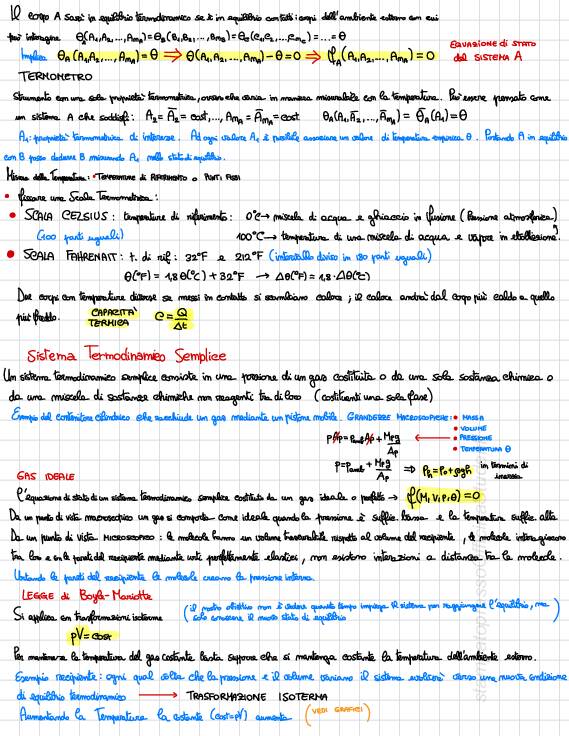 Il corpo A sarà in equilibrio termodinamico se è in equilibrio con tutti i corpi dell'ambiente esterno con cui
può interagire θA(A1,A2,...,AmA)=θB(B1,B2,...,BmB)=θC(C1,C2,...,CmC)=...=θ
Implica θA(A1,A2,...,AmA)=θ ⟹ θ(A1,A2,...,AmA)-θ=0 ⟹ φA(A1,A2,...,AmA)=0 EQUAZIONE DI STATO
del SISTEMA A
TERMOMETRO
Strumento con una sola proprietà termometrica, ovvero che varia in maniera misurabile con la temperatura. Può essere pensato come
un sistema A che soddisfi: A2=Ā2=cost,..., AmA=ĀmA=cost θA(A1,Ā2,...,ĀmA)=θ̄A(A1)=θ
A1: proprietà termometrica di interesse. Ad ogni valore A1 è possibile associare un valore di temperatura empirica θ. Portando A in equilibrio
con B posso dedurre B misurando A1 nello stato di equilibrio.
Misura della Temperatura: • TEMPERATURE DI RIFERIMENTO o PUNTI FISSI
• fissare una Scala Termometrica:
• SCALA CELSIUS: temperature di riferimento: 0°C → miscela di acqua e ghiaccio in fusione (Pressione atmosferica)
(100 parti uguali) 100°C → temperatura di una miscela di acqua e vapore in ebollizione
• SCALA FAHRENAIT: t. di rif: 32°F e 212°F (intervallo diviso in 180 parti uguali)
θ(°F) = 1,8 θ(°C) + 32°F → Δθ(°F) = 1,8·Δθ(°C)
Due corpi con temperature diverse se messi in contatto si scambiano calore; il calore andrà dal corpo più caldo a quello
più freddo. CAPACITA' TERMICA C=Q/Δt
Sistema Termodinamico Semplice
Un sistema termodinamico semplice consiste in una porzione di un gas costituita o da una sola sostanza chimica o
da una miscela di sostanze chimiche non reagenti tra di loro (costituenti una sola fase)
Esempio del contenitore cilindrico che racchiude un gas mediante un pistone mobile. GRANDEZZE MACROSCOPICHE: • MASSA
• VOLUME
pAp=pambAp+Mpg/Ap • PRESSIONE
• TEMPERATURA θ
p=pamb+Mpg/Ap ⟹ ph=p0+ρgh in termini di
GAS IDEALE
L'equazione di stato di un sistema termodinamico semplice costituito da un gas ideale o perfetto → φ(M,V,P,θ)=0
Da un punto di vista macroscopico un gas si comporta come ideale quando la pressione è suffic. bassa e la temperatura suffic. alta
Da un punto di vista MICROSCOPICO: le molecole hanno un volume trascurabile rispetto al volume del recipiente, le molecole interagiscono
tra loro e con le pareti del recipiente mediante urti perfettamente elastici, non esistono interazioni a distanza tra le molecole.
Urtando le pareti del recipiente le molecole creano la pressione interna.
LEGGE di Boyle-Mariotte
Si applica con trasformazioni isoterme (il nostro obiettivo non è vedere quanto tempo impiega il sistema per raggiungere l'equilibrio, ma
solo conoscere il nuovo stato di equilibrio
pV=cost
Per mantenere la temperatura del gas costante basta supporre che si mantenga costante la temperatura dell'ambiente esterno.
Esempio recipiente: ogni qual volta che la pressione e il volume variano il sistema evolverà verso una nuova condizione
di equilibrio termodinamico → TRASFORMAZIONE ISOTERMA
Aumentando la Temperatura la costante (cost=pV) aumenta (VEDI GRAFICI)